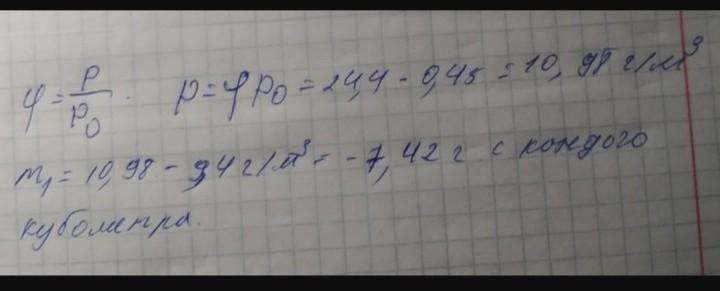 φ = P/P₀ . P = φP₀ = 24,4 - 0,45 = 10,98 г/м³
m₁ = 10,98 - 9,4 г/м³ = - 7,42 г с каждого
кубометра.